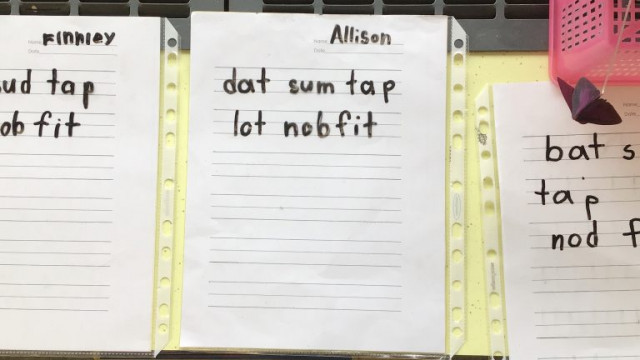 Finnley
ud tap
ob fit
Allison
dat sum tap
lot nob fit
bat s
tap
nod f